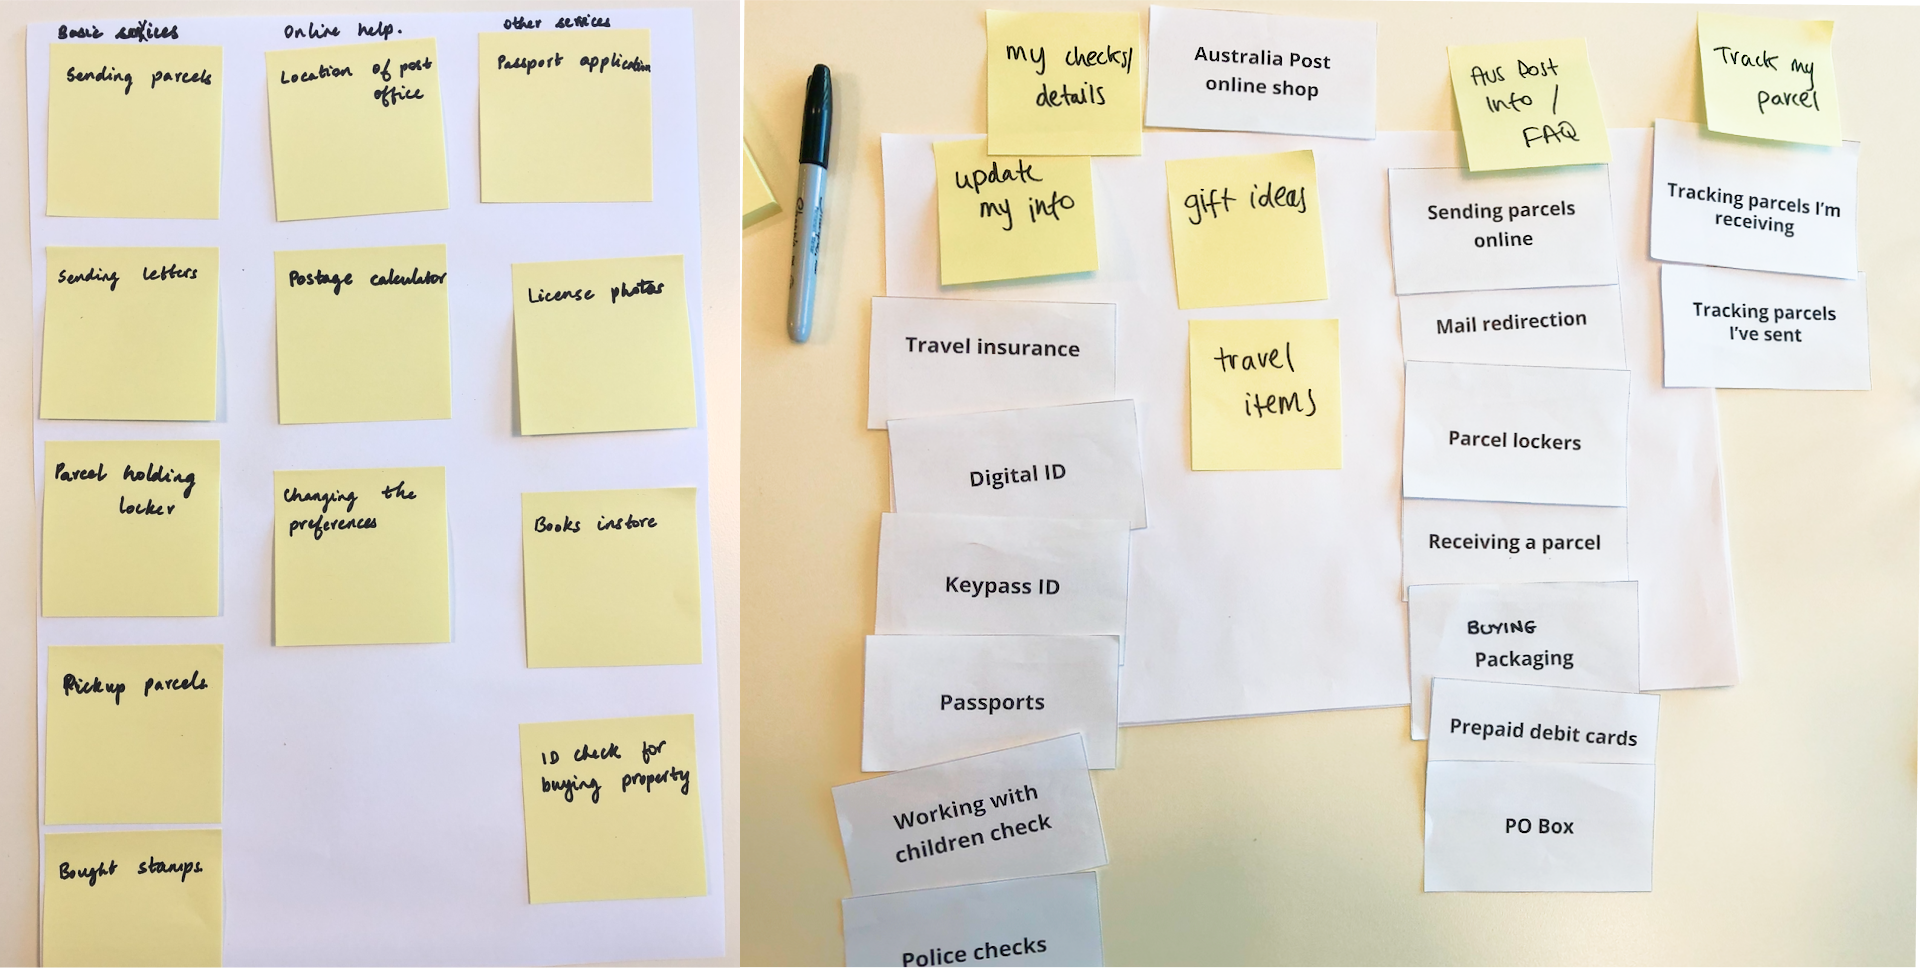 Basic services
Sending parcels
Sending letters
Parcel holding
locker
Pickup parcels
Bought stamps.
Online help.
Location of post
office
Postage calculator
Changing the
preferences
Other services
Passport application
License photos
Books instore
ID check for
buying property
my checks/
details
update
my info
Travel insurance
Digital ID
Keypass ID
Passports
Working with
children check
Police checks
Australia Post
online shop
gift ideas
travel
items
Aus Post
Info /
FAQ
Sending parcels
online
Mail redirection
Parcel lockers
Receiving a parcel
BUYING
Packaging
Prepaid debit cards
PO Box
Track my
parcel
Tracking parcels I'm
receiving
Tracking parcels
I've sent